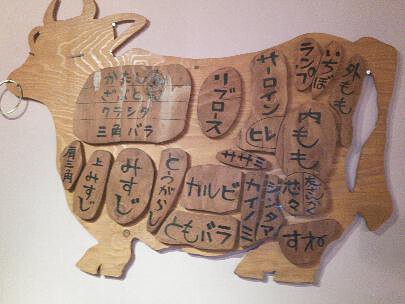 かたしん
ざぶとん
クラシタ
三角バラ
リブロース
サーロイン
ランプ
いちぼ
外もも
ヒレ
内もも
ササミ
肩三角
上みすじ
みすじ
とうがらし
カルビ
カイノミ
シンタマ
芯々
ともバラ
すね